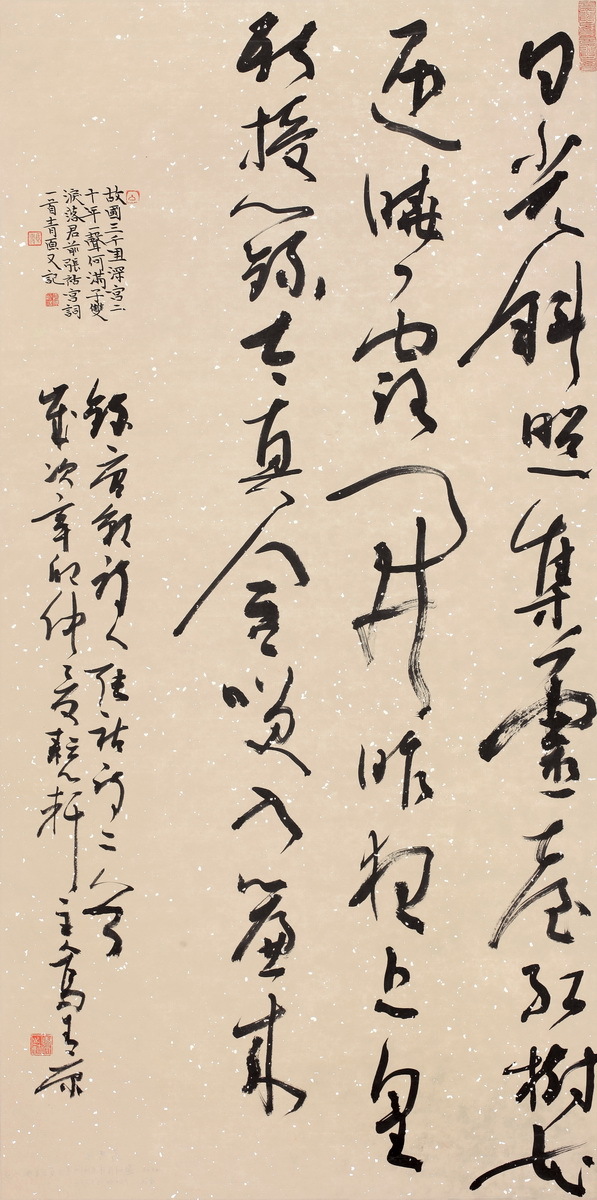 日光斜照集靈臺紅樹花
迎曉露開昨夜上皇
新授籙太真含笑入簾來
故國三千里深宮二
十年一聲何滿子雙
淚落君前張祜宮詞
一首青又記
錄唐朝詩人張祜詩二首
歲次辛卯仲夏耘心軒主人